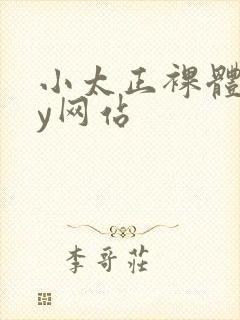 小太正裸體
y网佔
李哥莊